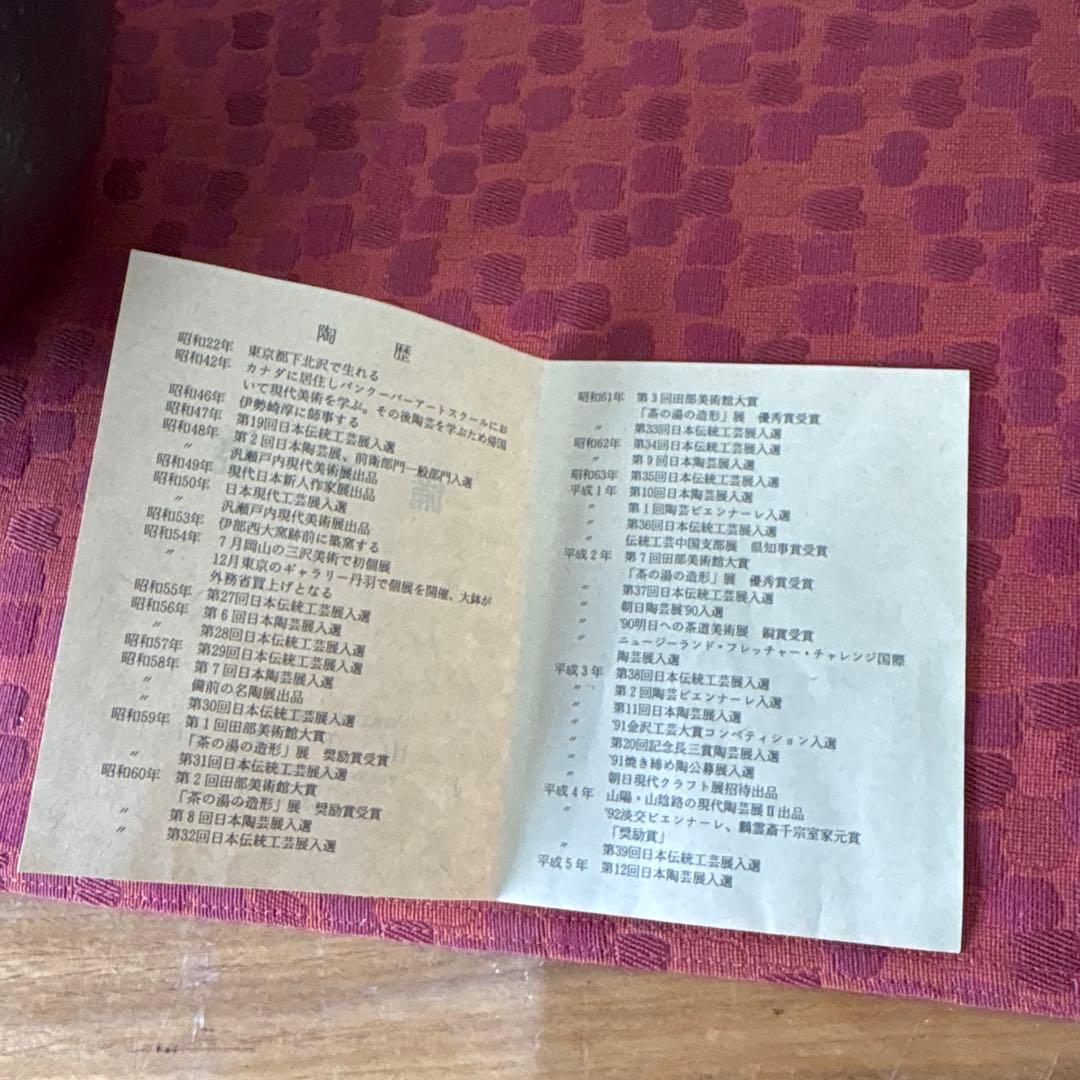 陶歴
昭和22年 東京都下北沢で生れる
昭和42年 カナダに居住しバンクーバーアートスクールにお
いて現代美術を学ぶ。その後陶芸を学ぶため帰国
昭和46年 伊勢崎淳に師事する
昭和47年 第19回日本伝統工芸展入選
昭和48年 第2回日本陶芸展、前衛部門一般部門入選
〃 汎瀬戸内現代美術展出品
昭和49年 現代日本新人作家展出品
昭和50年 日本現代工芸展入選
〃 汎瀬戸内現代美術展出品
昭和53年 伊部西大窯跡前に築窯する
昭和54年 7月岡山の三沢美術で初個展
〃 12月東京のギャラリー丹羽で個展を開催、大鉢が
外務省買上げとなる
昭和55年 第27回日本伝統工芸展入選
昭和56年 第6回日本陶芸展入選
〃 第28回日本伝統工芸展入選
昭和57年 第29回日本伝統工芸展入選
昭和58年 第7回日本陶芸展入選
〃 備前の名陶展出品
〃 第30回日本伝統工芸展入選
昭和59年 第1回田部美術館大賞
「茶の湯の造形」展 奨励賞受賞
〃 第31回日本伝統工芸展入選
昭和60年 第2回田部美術館大賞
「茶の湯の造形」展 奨励賞受賞
〃 第8回日本陶芸展入選
〃 第32回日本伝統工芸展入選
昭和61年 第3回田部美術館大賞
「茶の湯の造形」展 優秀賞受賞
〃 第33回日本伝統工芸展入選
昭和62年 第34回日本伝統工芸展入選
〃 第9回日本陶芸展入選
昭和63年 第35回日本伝統工芸展入選
平成1年 第10回日本陶芸展入選
〃 第1回陶芸ビエンナーレ入選
〃 第36回日本伝統工芸展入選
〃 伝統工芸中国支部展 県知事賞受賞
平成2年 第7回田部美術館大賞
「茶の湯の造形」展 優秀賞受賞
〃 第37回日本伝統工芸展入選
〃 朝日陶芸展'90入選
〃 '90明日への茶道美術展 銅賞受賞
〃 ニュージーランド・フレッチャー・チャレンジ国際
陶芸展入選
平成3年 第38回日本伝統工芸展入選
〃 第2回陶芸ビエンナーレ入選
〃 第11回日本陶芸展入選
〃 '91金沢工芸大賞コンペティション入選
〃 第20回記念長三賞陶芸展入選
〃 '91焼き締め陶公募展入選
〃 朝日現代クラフト展招待出品
平成4年 山陽・山陰路の現代陶芸展II出品
〃 '92淡交ビエンナーレ、鵬雲斎千宗室家元賞
「奨励賞」
〃 第39回日本伝統工芸展入選
平成5年 第12回日本陶芸展入選